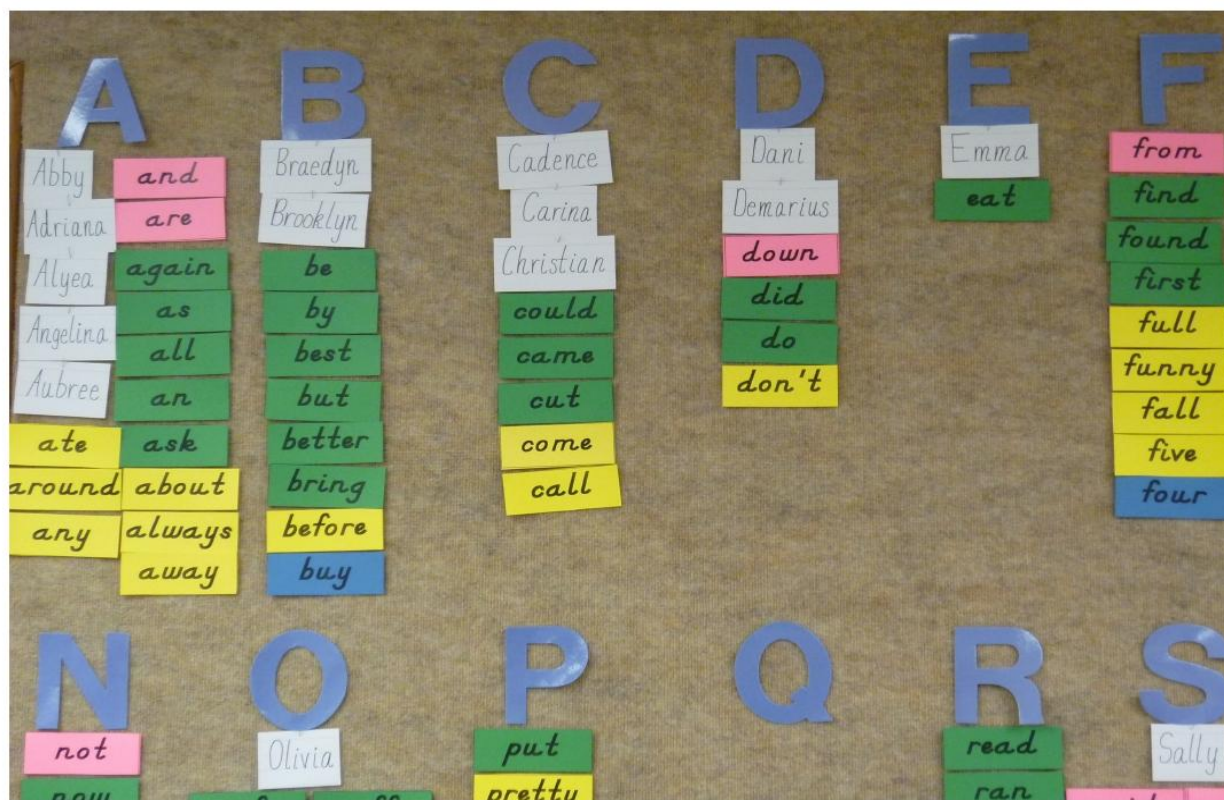 A
Abby
Adriana
Alyea
Angelina
Aubree
ate
around
any
and
are
again
as
all
an
ask
about
always
away
B
Braedyn
Brooklyn
be
by
best
but
better
bring
before
buy
C
Cadence
Carina
Christian
could
came
cut
come
call
D
Dani
Demarius
down
did
do
don't
E
Emma
eat
F
from
find
found
first
full
funny
fall
five
four
N
not
now
O
Olivia
P
put
pretty
Q
R
read
ran
S
Sally